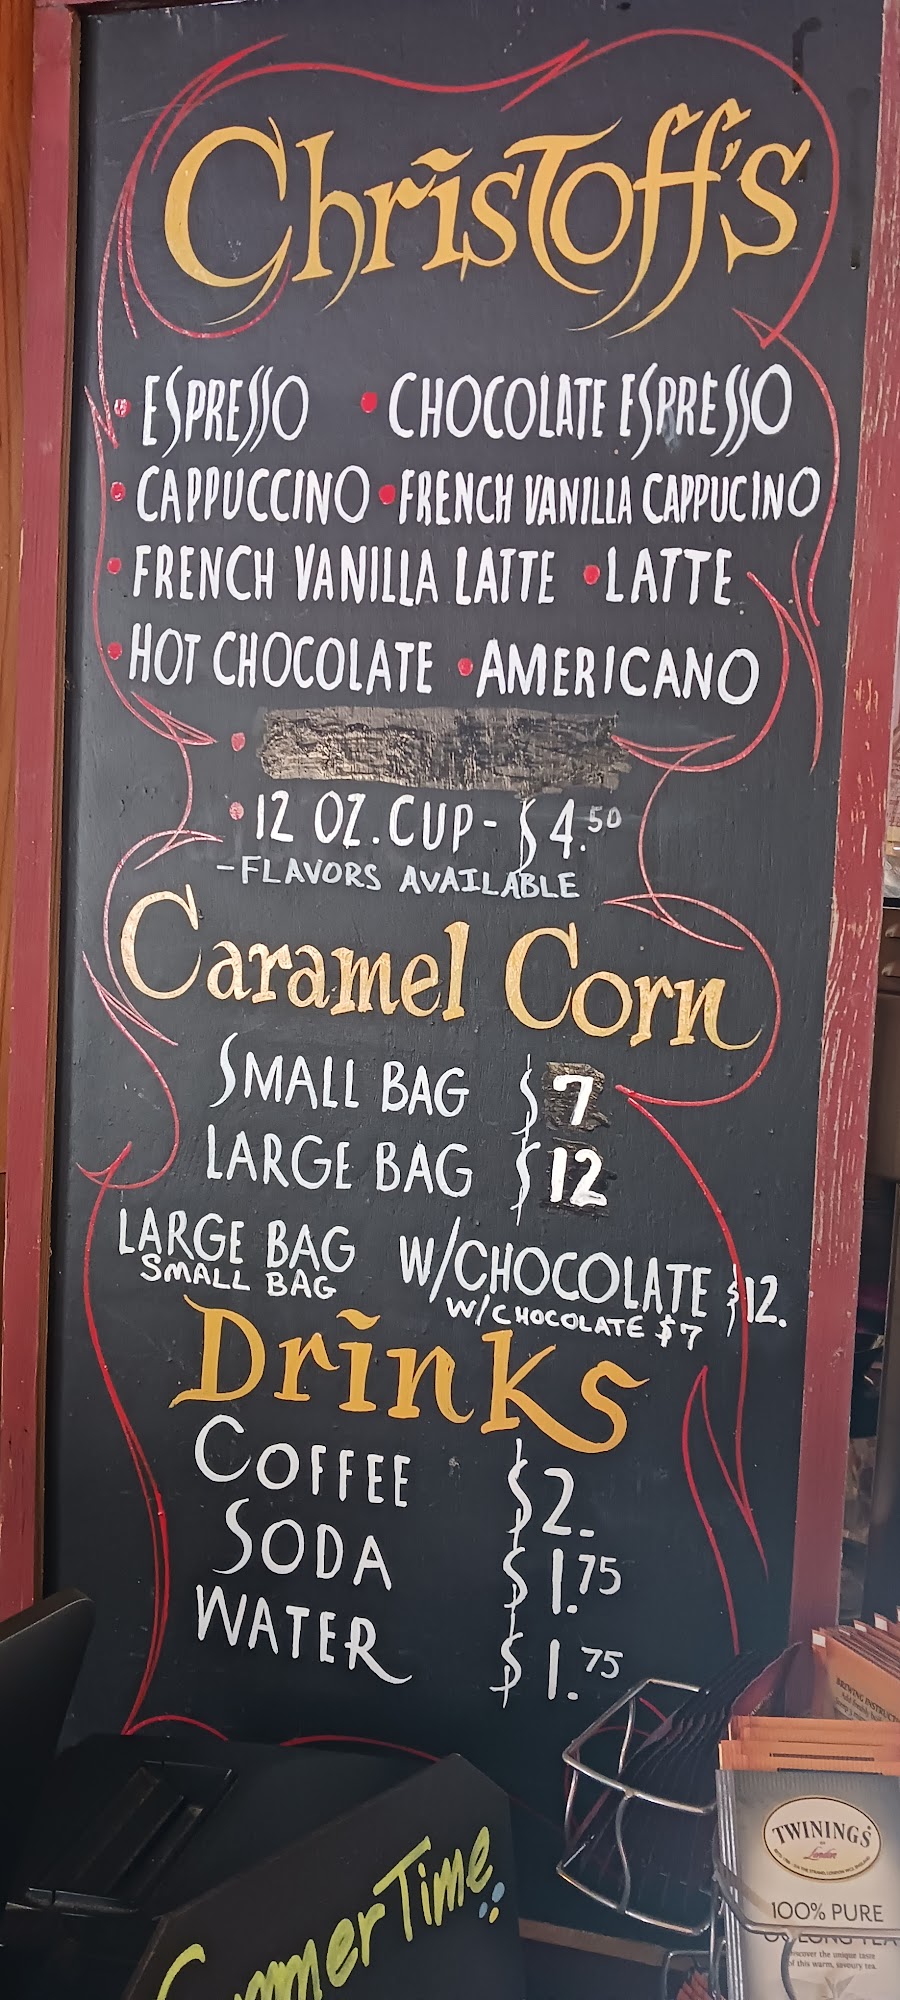 Christoff's
• ESPRESSO • CHOCOLATE ESPRESSO
• CAPPUCCINO • FRENCH VANILLA CAPPUCINO
• FRENCH VANILLA LATTE • LATTE
• HOT CHOCOLATE • AMERICANO
• 12 OZ. CUP - $4.50
- FLAVORS AVAILABLE
Caramel Corn
SMALL BAG $7
LARGE BAG $12
LARGE BAG W/CHOCOLATE $12.
SMALL BAG W/CHOCOLATE $7
Drinks
COFFEE $2.
SODA $1.75
WATER $1.75
BREWING INSTRUCTIONS
TWININGS
OF
London
100% PURE
OOLONG TEA
Discover the unique taste
of this warm, savoury tea.
Summer Time